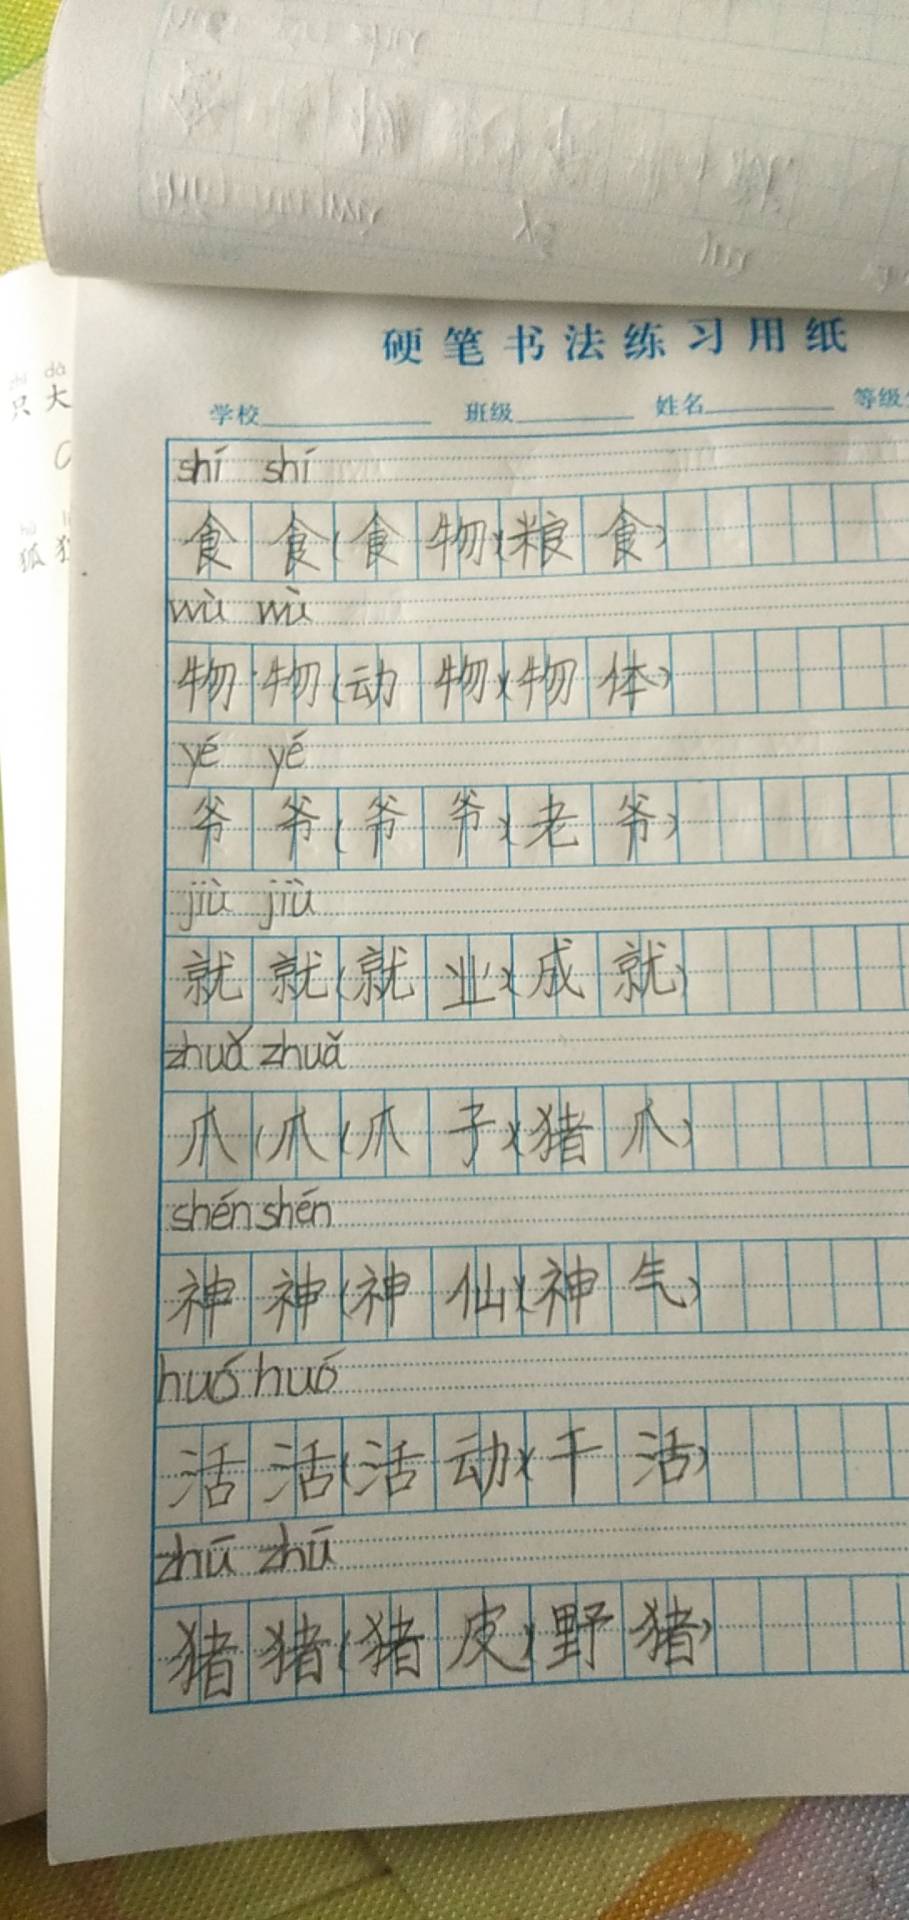 硬笔书法练习用纸
学校 班级 姓名 等级
shí shí
食食(食物)(粮食)
wù wù
物物(动物)(物体)
yé yé
爷爷(爷爷)(老爷)
jiù jiù
就就(就业)(成就)
zhuǎ zhuǎ
爪(爪(爪子)(猪爪)
shén shén
神神(神仙)(神气)
huó huó
活活(活动)(干活)
zhū zhū
猪猪(猪皮)(野猪)
dà
只大
狐狸